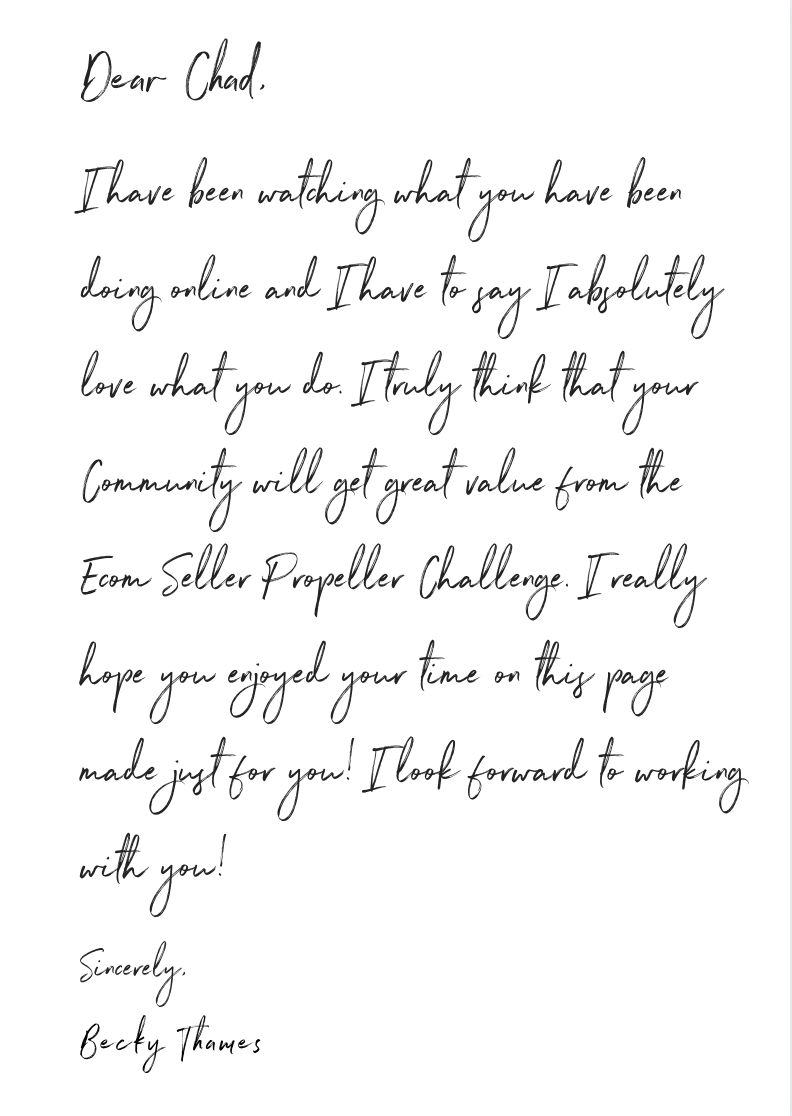 Dear Chad,
I have been watching what you have been
doing online and I have to say I absolutely
love what you do. I truly think that your
Community will get great value from the
Ecom Seller Propeller Challenge. I really
hope you enjoyed your time on this page
made just for you! I look forward to working
with you!
Sincerely,
Becky Thames